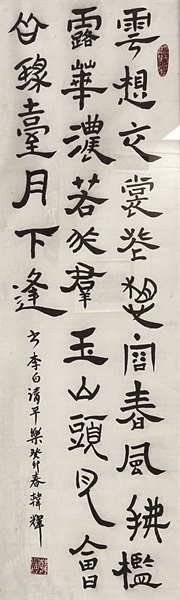 雲想衣裳花想容春風拂檻
露華濃若非羣玉山頭見會
向瑤臺月下逢
书李白清平樂癸卯春韓輝